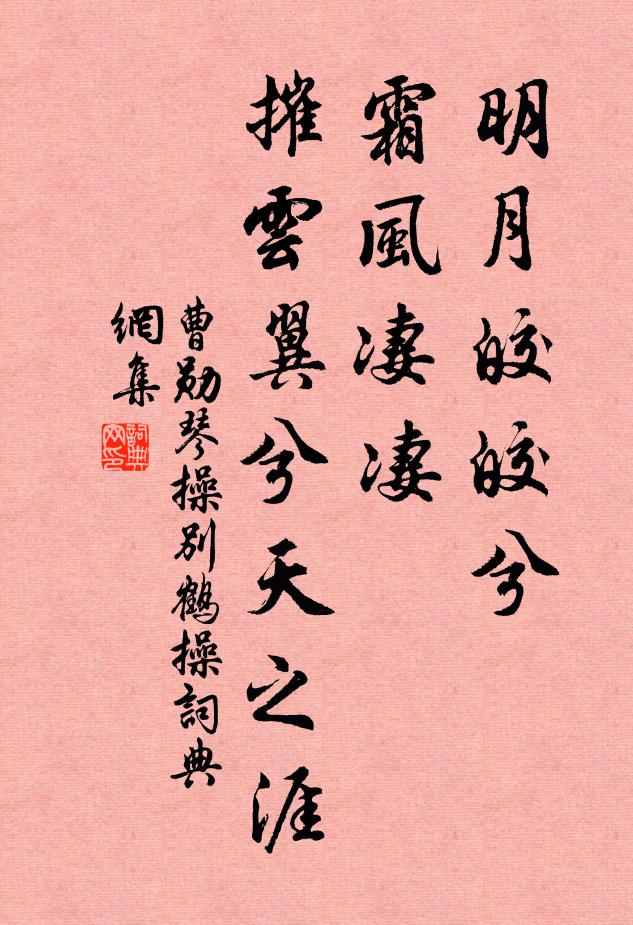 明月皎皎兮
霜風凄凄
摧雲翼兮天之涯
曹勛琴操別鶴操詞典
網集
詞典網印